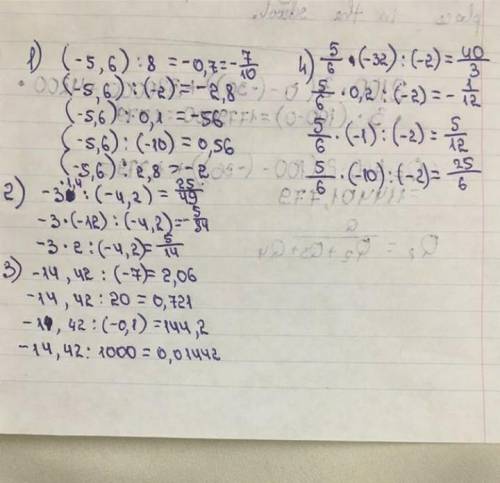 1) (-5,6) : 8 = -0,7 = -7/10
(-5,6) : (-2) = -2,8
(-5,6) : 0,1 = -56
(-5,6) : (-10) = 0,56
(-5,6) : 2,8 = -2
2) -3 · 1,4 : (-4,2) = 25/49
-3 · (-12) : (-4,2) = -5/84
-3 · 2 : (-4,2) = 5/14
3) -14,42 : (-7) = 2,06
-14,42 : 20 = 0,721
-14,42 : (-0,1) = 144,2
-14,42 : 1000 = 0,01442
4) 5/6 · (-32) : (-2) = 40/3
5/6 · 0,2 : (-2) = -1/12
5/6 · (-1) : (-2) = 5/12
5/6 · (-10) : (-2) = 25/6